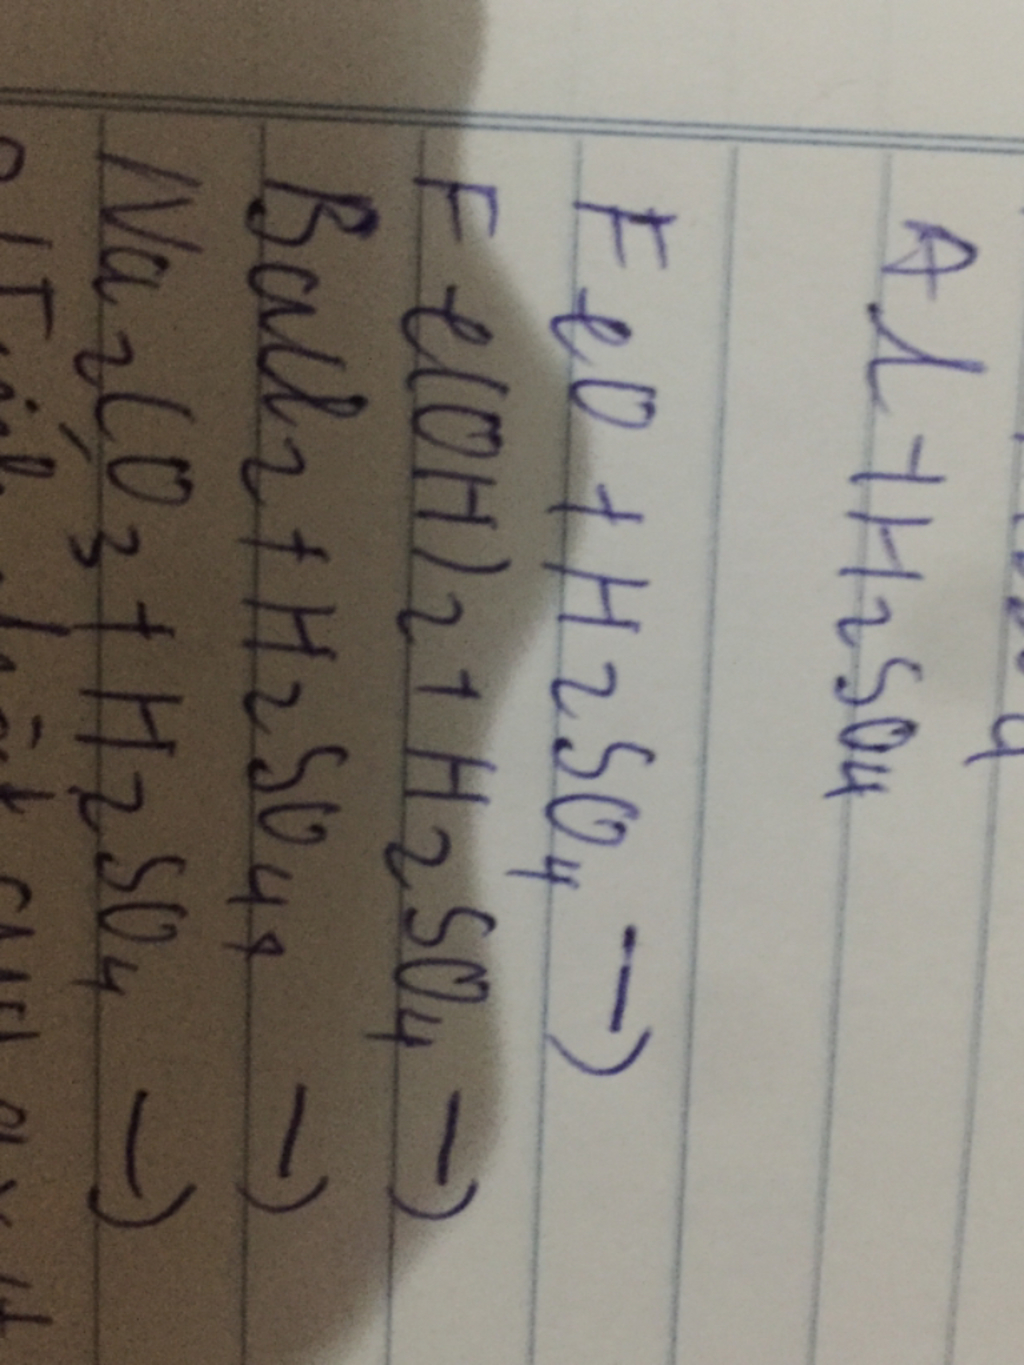 Al + H2SO4
FeO + H2SO4 →
Fe(OH)2 + H2SO4 →
BaCl2 + H2SO4 →
Na2CO3 + H2SO4 →